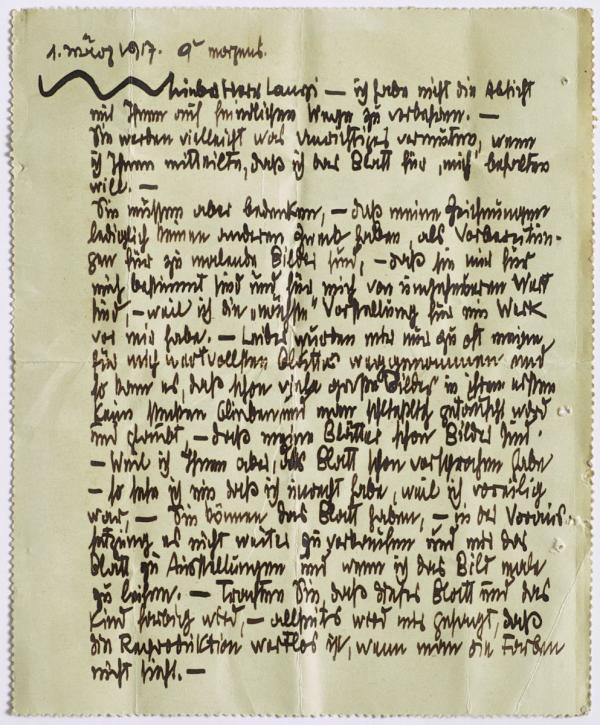 1. März 1917. 9h morgens.
Lieber Herr Lanyi — ich habe nicht die Absicht
mit Ihnen auf feindlichem Wege zu verkehren. —
Sie werden vielleicht was Unrichtiges vermuten, wenn
ich Ihnen mitteilte, daß ich das Blatt für „mich" behalten
will. —
Sie müssen aber bedenken, — daß meine Zeichnungen
lediglich keinen anderen Zweck haben, als Vorbereitun-
gen für zu malende Bilder sind, — daß sie nur für
mich bestimmt sind und für mich von ungeheurem Wert
sind, — weil ich die Vorstellung für ein Werk
vor mir habe. — Leider wurden mir nur zu oft meine
für mich wertvollsten Blätter weggenommen und
so kam es, daß schon viele große Bilder in ihrem ersten
Keim stecken blieben und man schließlich getäuscht wird
und glaubt, — daß meine Blätter schon Bilder sind.
— Weil ich Ihnen aber, das Blatt schon versprochen habe
— so sehe ich ein daß ich unrecht habe, weil ich voreilig
war, — Sie können das Blatt haben, — in der Voraus-
setzung es nicht weiter zu verkaufen und mir das
Blatt zu Ausstellungen und wenn ich das Bild male
zu leihen. — Trachten Sie, daß dieses Blatt und das
Kind farbig wird, — allseits wird mir gesagt, daß
die Reproduktion wertlos ist, wenn man die Farben
nicht sieht. —